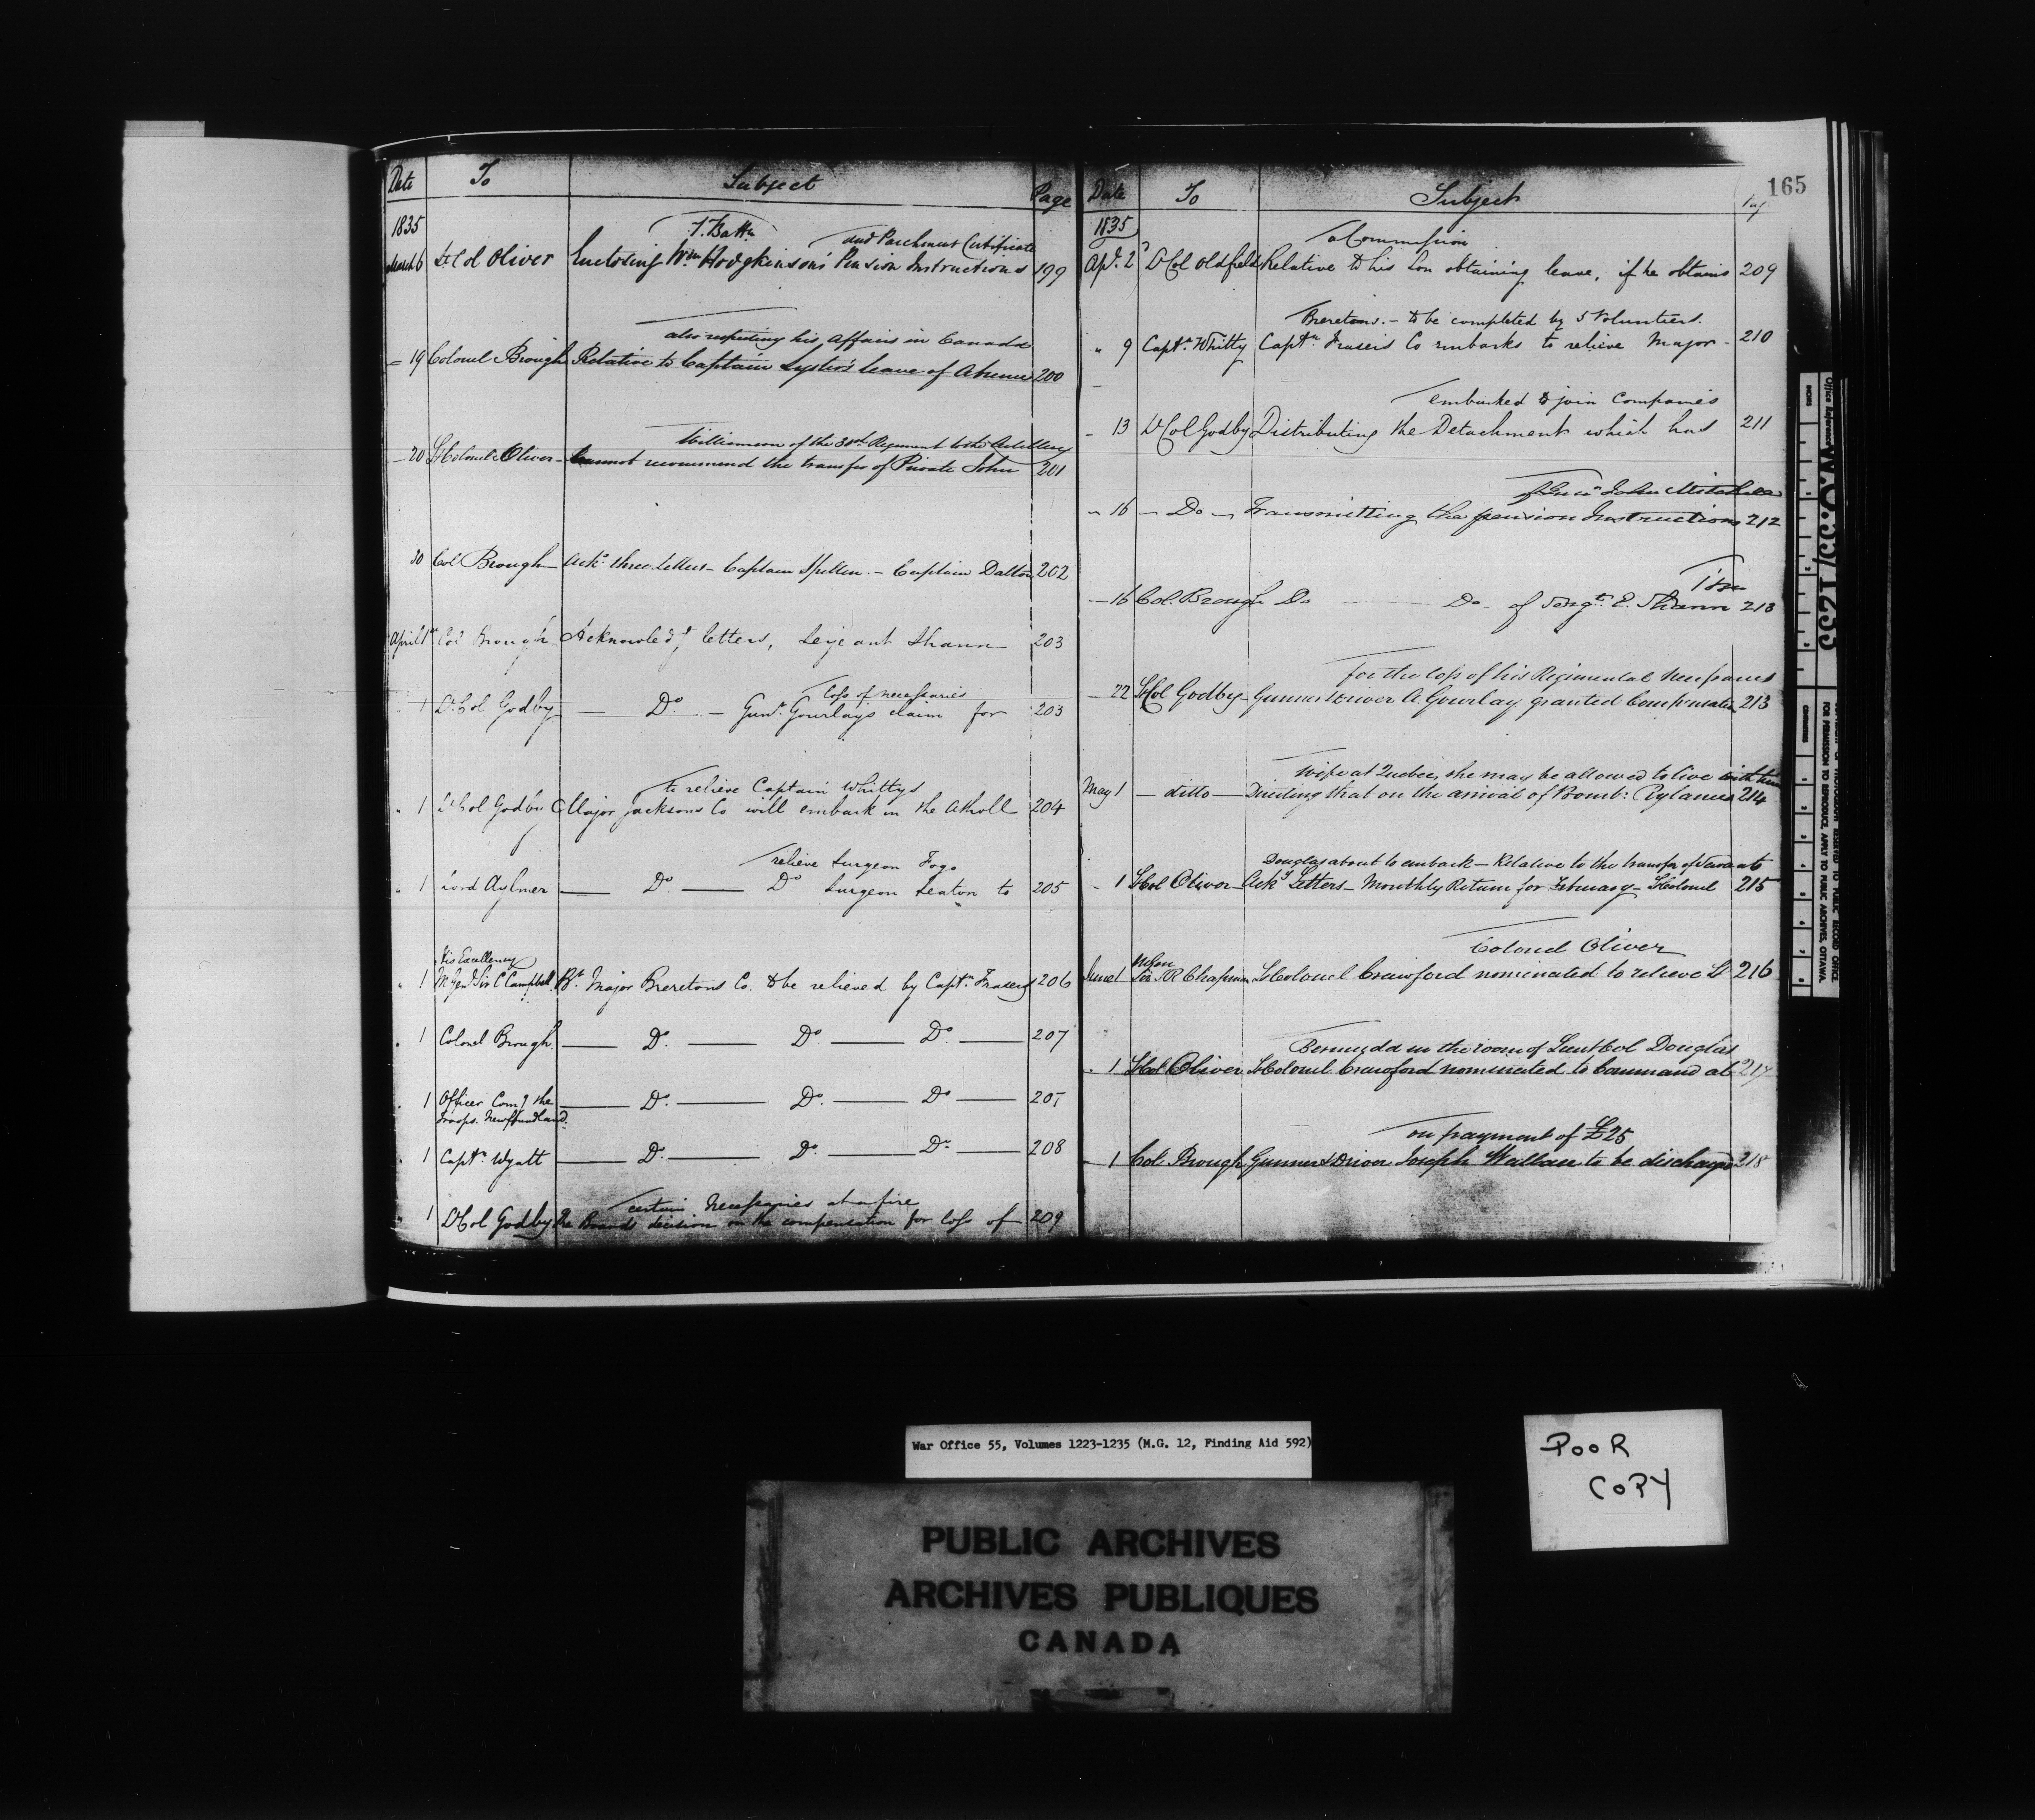 165
Date To Subject Page
1835
7. Battn and Parchment Certificate
March 6 Lt Col Oliver Enclosing Wm Hodgkinson's Pension Instructions 199
also respecting his Affairs in Canada
19 Colonel Brough Relative to Captain Lyster's leave of Absence 200
Williamson of the 32nd Regiment to the Artillery
20 Lt Colonel Oliver Cannot recommend the transfer of Private John 201
30 Col Brough Ackg three Letters - Captain Spellen - Captain Dalton 202
April 1st Col Brough Acknowledg letters, Serjeant Shann 203
loss of necessaries
1 Lt Col Godby Do - Gunr Gourlay's claim for 203
to relieve Captain Whittys
1 Lt Col Godby Major Jacksons Co will embark in the Atholl 204
relieve Surgeon Fogo
1 Lord Aylmer Do Do Surgeon Seaton to 205
His Excellency
1 M. Genl Sir C Campbell Bt Major Breretons Co. to be relieved by Captn Frasers 206
1 Colonel Brough Do Do Do 207
1 Officer Comg the Do Do Do 207
Troops. Newfoundland.
1 Captn Wyatt Do Do Do 208
certain Necessaries at a fire
1 Lt Col Godby The Boards decision on the compensation for loss of 209
Date To Subject
1835
a Commission
Apl. 2d Lt Col Oldfield Relative to his Son obtaining leave, if he obtains 209
Breretons. - to be completed by 5 Volunteers.
" 9 Captn Whitty Captn Frasers Co embarks to relieve Major - 210
embarked to join Companies
13 Lt Col Godby Distributing the Detachment which has 211
of Gunr John Mitchell
16 - Do - Transmitting the pension Instructions 212
16 Col. Brough Do Do of Sergt E. Shann 213
for the loss of his Regimental Necessaries
22 Lt Col Godby Gunner & Driver A. Gourlay granted Compensation 213
Wife at Quebec, she may be allowed to live with him
May 1 - ditto - Directing that on the arrival of Bomb: Rylances 214
Douglas about to embark - Relative to the transfer of Servants
1 Lt Col Oliver Ackg Letters - Monthly Return for February - Lt Colonel 215
Colonel Oliver
June 1 Sir S R Chapman Lt Colonel Crawford nominated to relieve Lt 216
Bermuda in the room of Lieut Col Douglas
1 Lt Col Oliver Lt Colonel Crawford nominated to Command at 217
on payment of £25
1 Col Brough Gunner & Driver Joseph Wallace to be discharged 218
W.O.55/1235
FOR PERMISSION TO REPRODUCE, APPLY TO PUBLIC ARCHIVES, OTTAWA.
War Office 55, Volumes 1223-1235 (M.G. 12, Finding Aid 592)
POOR
COPY
PUBLIC ARCHIVES
ARCHIVES PUBLIQUES
CANADA